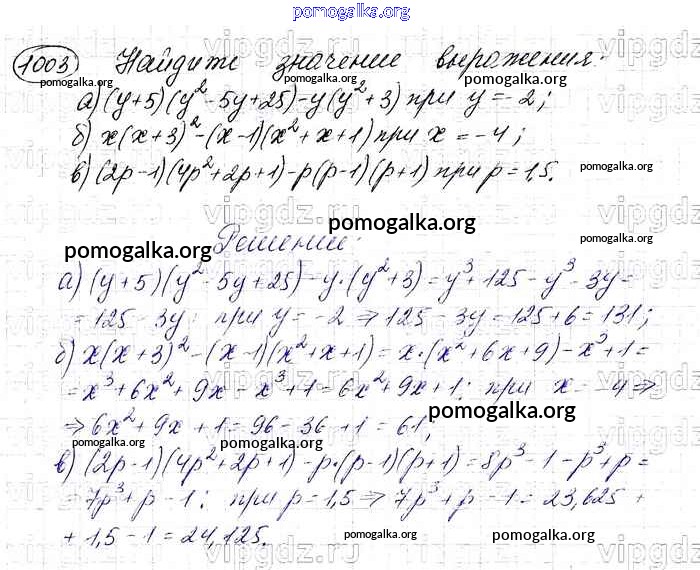 pomogalka.org
1003 Найдите значение выражения:
pomogalka.org pomogalka.org pomogalka.org
а) (y+5)(y²-5y+25)-y(y²+3) при y=-2;
б) x(x+3)²-(x-1)(x²+x+1) при x=-4;
в) (2p-1)(4p²+2p+1)-p(p-1)(p+1) при p=1,5.
pomogalka.org
pomogalka.org
Решение:
pomogalka.org pomogalka.org
а) (y+5)(y²-5y+25)-y·(y²+3)=y³+125-y³-3y=
=125-3y; при y=-2 ⇒ 125-3y=125+6=131;
pomogalka.org pomogalka.org
б) x(x+3)²-(x-1)(x²+x+1)=x·(x²+6x+9)-x³+1=
=x³+6x²+9x-x³+1=6x²+9x+1; при x=-4 ⇒
⇒ 6x²+9x+1=96-36+1=61;
pomogalka.org
pomogalka.org pomogalka.org
в) (2p-1)(4p²+2p+1)-p·(p-1)(p+1)=8p³-1-p³+p=
=7p³+p-1; при p=1,5 ⇒ 7p³+p-1=23,625+
+1,5-1=24,125.
pomogalka.org pomogalka.org